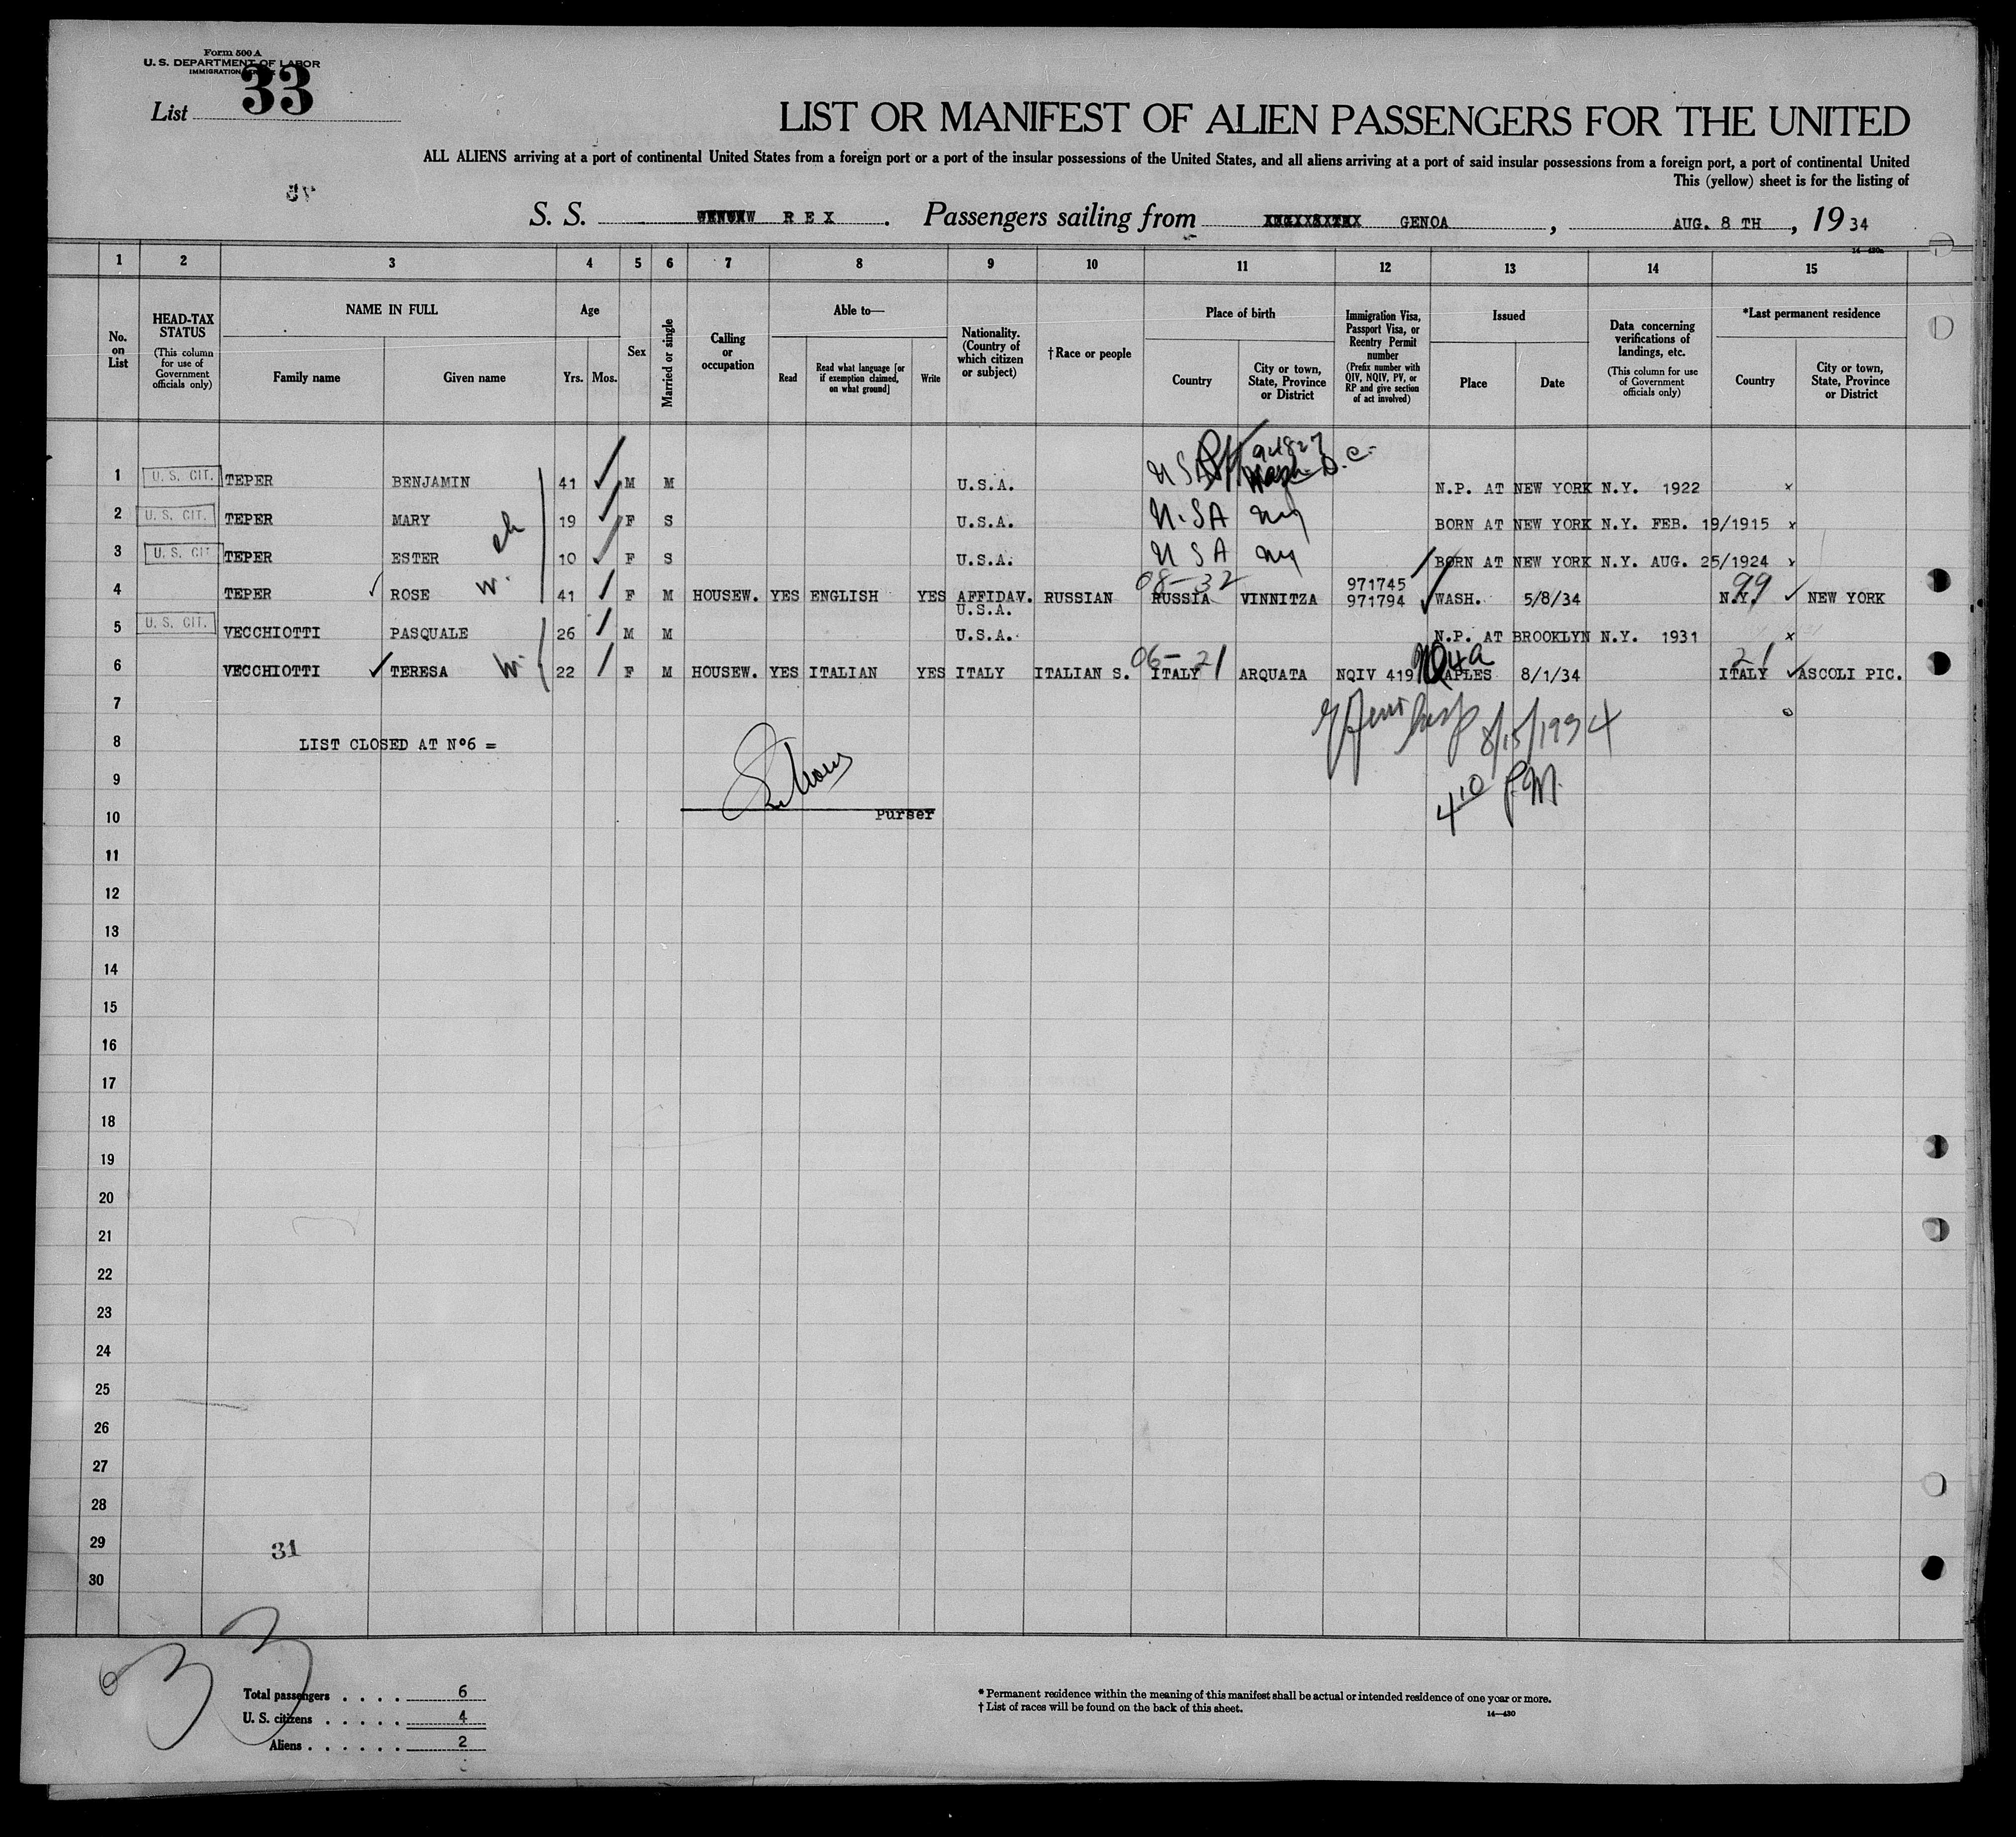 Form 500 A
U. S. DEPARTMENT OF LABOR
IMMIGRATION
List 33
LIST OR MANIFEST OF ALIEN PASSENGERS FOR THE UNITED
ALL ALIENS arriving at a port of continental United States from a foreign port or a port of the insular possessions of the United States, and all aliens arriving at a port of said insular possessions from a foreign port, a port of continental United
This (yellow) sheet is for the listing of
S. S. REX . Passengers sailing from GENOA , AUG. 8 TH , 19 34
14-430a
1 2 3 4 5 6 7 8 9 10 11 12 13 14 15
No. on List
HEAD-TAX STATUS
(This column for use of Government officials only)
NAME IN FULL
Family name
Given name
Age
Yrs. Mos.
Sex
Married or single
Calling or occupation
Able to—
Read
Read what language [or if exemption claimed, on what ground]
Write
Nationality. (Country of which citizen or subject)
† Race or people
Place of birth
Country
City or town, State, Province or District
Immigration Visa, Passport Visa, or Reentry Permit number
(Prefix number with QIV, NQIV, PV, or RP and give section of act involved)
Issued
Place
Date
Data concerning verifications of landings, etc.
(This column for use of Government officials only)
*Last permanent residence
Country
City or town, State, Province or District
94827
1 U. S. CIT. TEPER BENJAMIN 41 M M U.S.A. USA Wash D.C. N.P. AT NEW YORK N.Y. 1922 x
2 U. S. CIT. TEPER MARY 19 F S U.S.A. U.SA ny BORN AT NEW YORK N.Y. FEB. 19/1915 x
ch
3 U. S. CIT TEPER ESTER 10 F S U.S.A. USA ny BORN AT NEW YORK N.Y. AUG. 25/1924 x
08-32 971745 99
4 TEPER ROSE W. 41 F M HOUSEW. YES ENGLISH YES AFFIDAV. U.S.A. RUSSIAN RUSSIA VINNITZA 971794 WASH. 5/8/34 N.Y. NEW YORK
5 U. S. CIT. VECCHIOTTI PASQUALE 26 M M U.S.A. N.P. AT BROOKLYN N.Y. 1931 x
06-21 4a 21
6 VECCHIOTTI TERESA W. 22 F M HOUSEW. YES ITALIAN YES ITALY ITALIAN S. ITALY ARQUATA NQIV 419 NAPLES 8/1/34 ITALY ASCOLI PIC.
7
8/15/1934
8 LIST CLOSED AT N°6 =
9
4 10 P.M.
10 Purser
11
12
13
14
15
16
17
18
19
20
21
22
23
24
25
26
27
28
29 31
30
33
Total passengers . . . . 6
U. S. citizens . . . . . 4
Aliens . . . . . . 2
* Permanent residence within the meaning of this manifest shall be actual or intended residence of one year or more.
† List of races will be found on the back of this sheet.
14—430